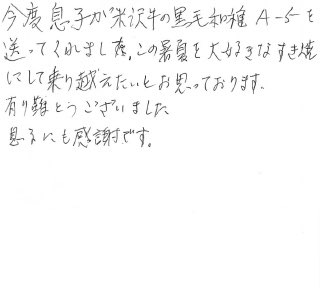 今度息子が米沢牛の黒毛和種A-5を
送ってくれました。この暑夏を大好きなすき焼
にして乗り越えたいとお思っております。
有り難とうございました
息子にも感謝です。